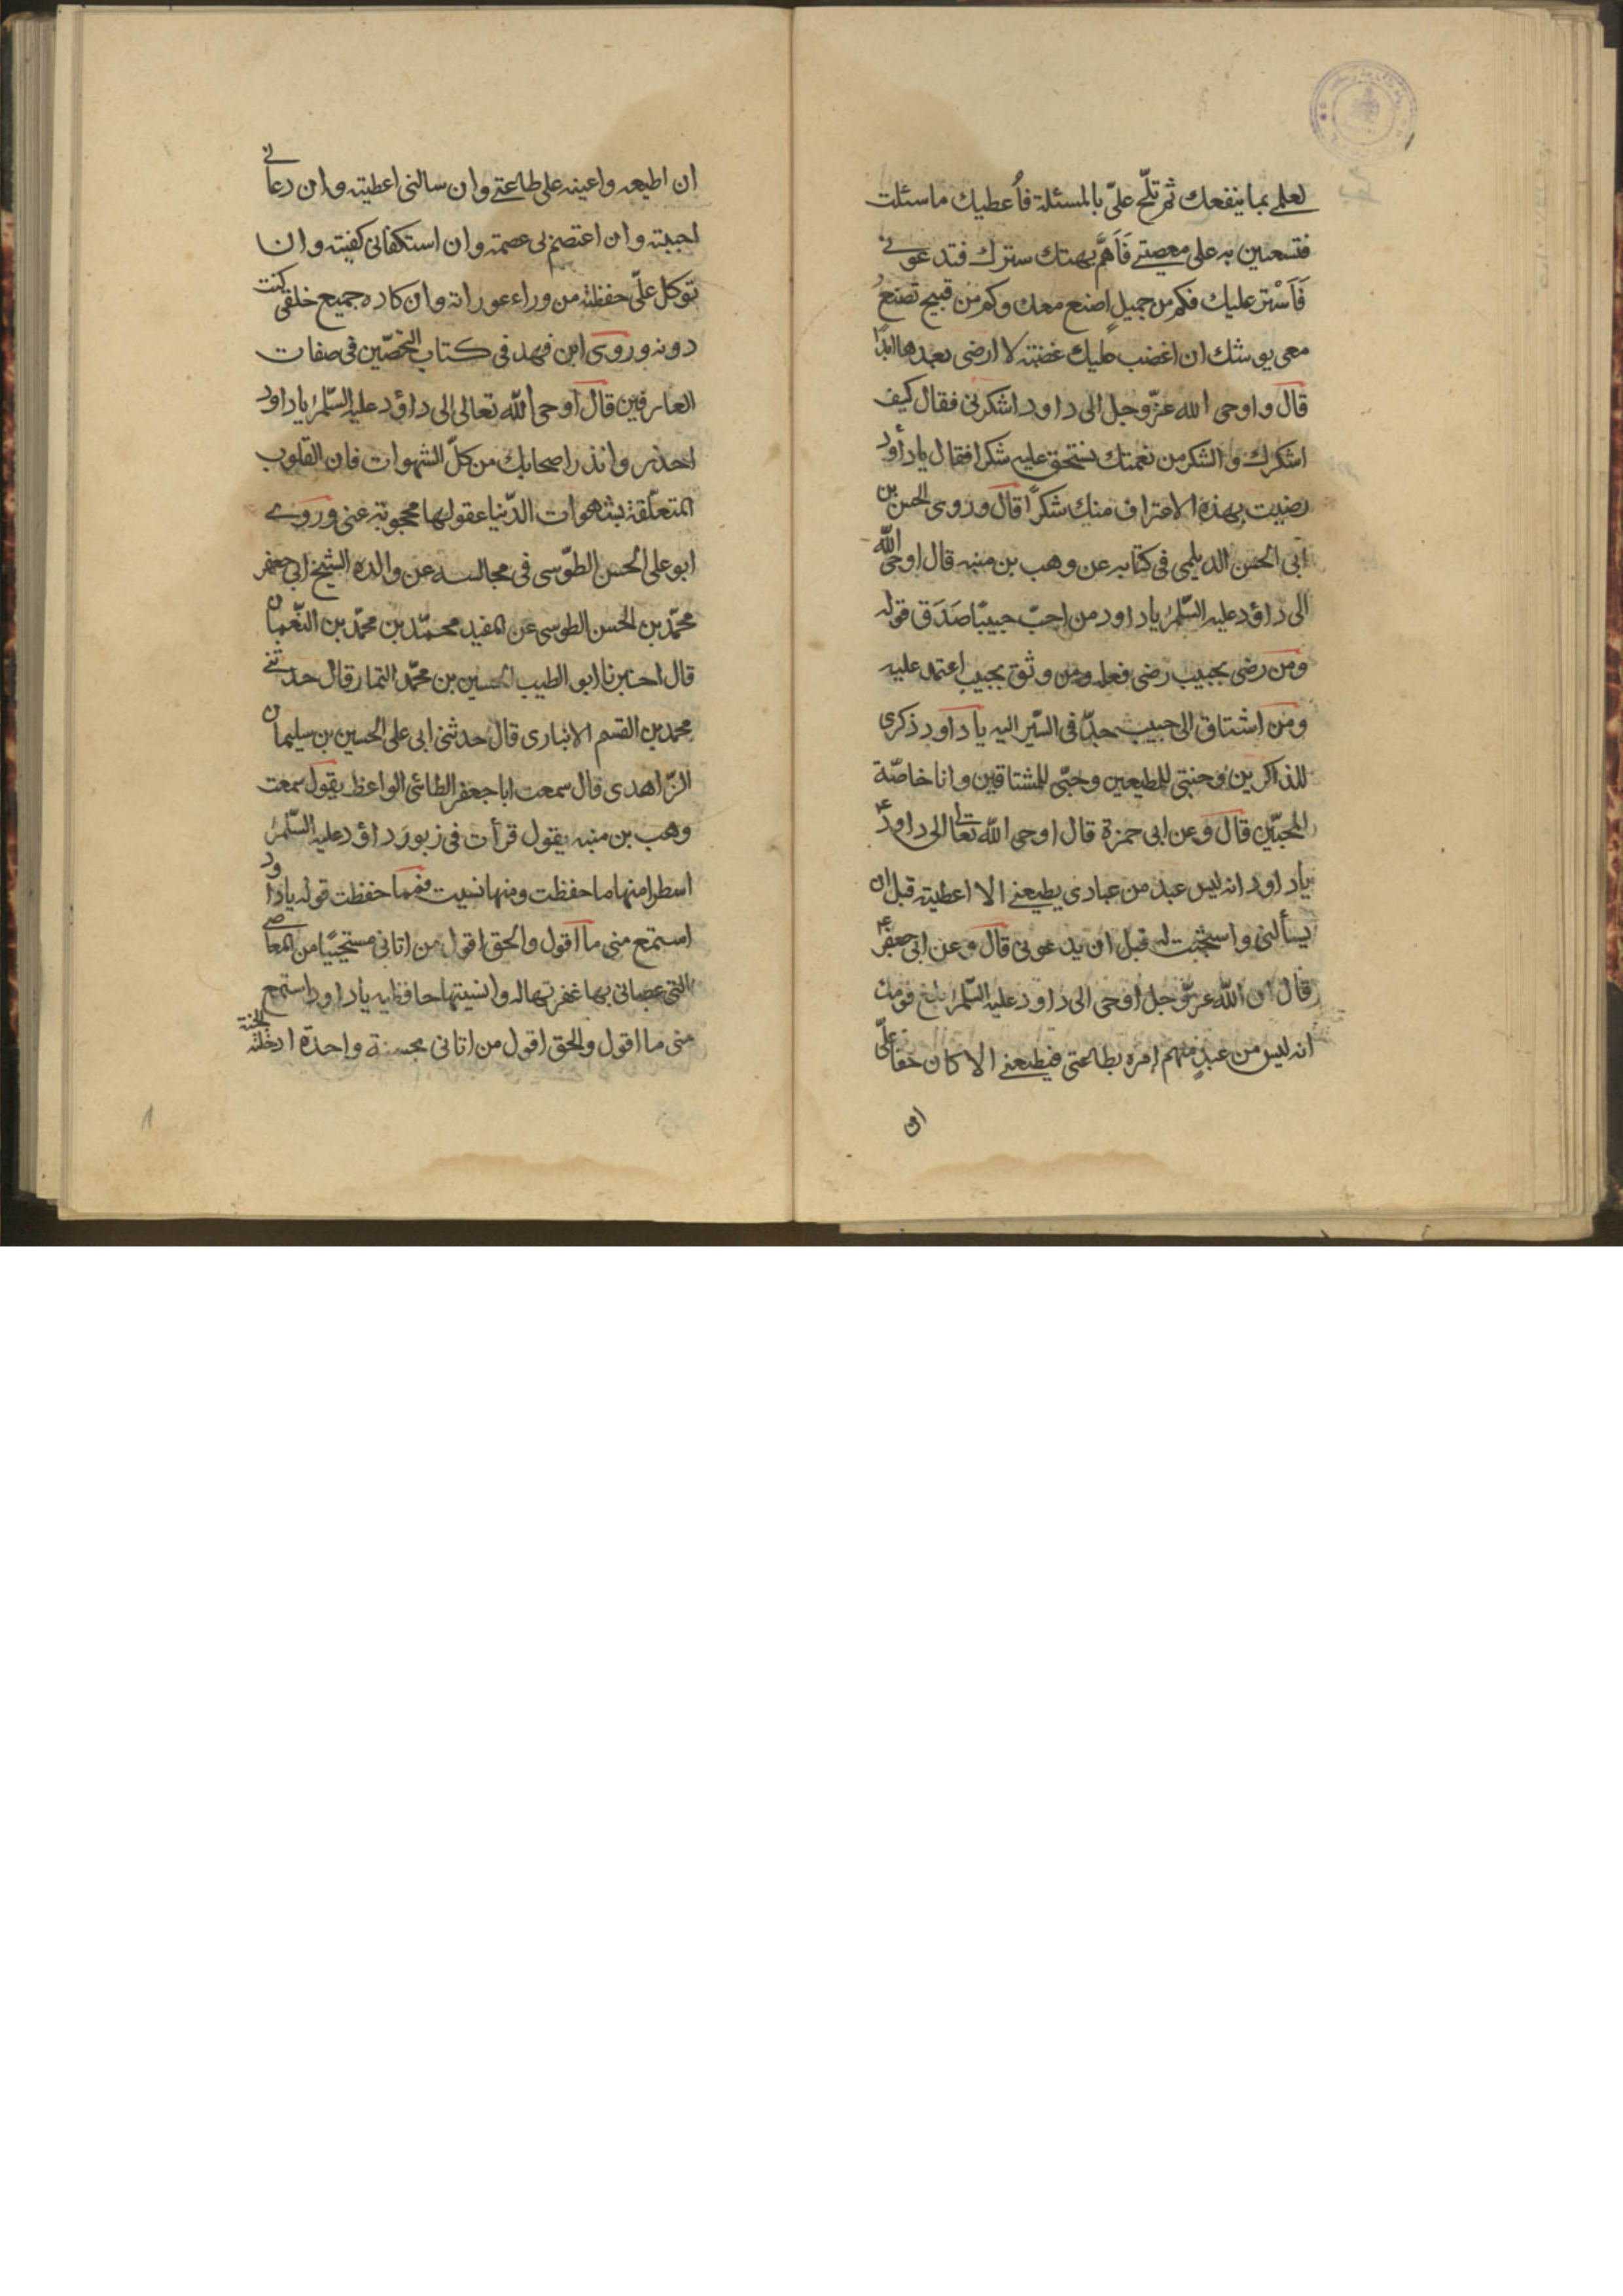 لعلمي بما ينفعك ثم تلحّ عليّ بالمسئلة فأُعطيك ما سئلت
فتستعين به على معصيتي فَاَهُمّ بهتك سترك فتدعوني
فَاَسْتر عليك فكم من جميلٍ اصنع معك وكم من قبيح تصنعُ
معي يوشك ان اغضب عليك غضبة لا ارضى بعدها ابدًا
قال واوحى الله عزّ وجل الى داود اشكرني فقال كيف
اشكرك والشكر من نعمتك تستحق عليه شكرا فقال يا داود
رضيت بهذه الاعتراف منك شكرًا قال وروى الحسن بن
ابي الحسن الديلمي في كتابه عن وهب بن منبه قال اوحى الله
الى داؤد عليه السّلم يا داود من احبّ حبيبًا صَدَق قوله
ومن رضى بحبيب رضى فعله ومن وثق بحبيب اعتمد عليه
ومن اشتاق الى حبيب جدّ في السّير اليه يا داود ذكرى
للذاكرين وجنتي للمطيعين وحبّي للمشتاقين وانا خاصّة
للمحبّين قال وعن ابي حمزة قال اوحى الله تعالى الى داودؑ
يا داود انه ليس عبد من عبادى يطيعني الا اعطيته قبل ان
يسألني واستجبت له قبل ان يدعوني قال وعن ابي جعفرؑ
قال ان الله عزّ وجل اوحى الى داود عليه السّلم بلغ قومك
انه ليس من عبدٍ منهم امره بطاعتى فيطيعني الا كان حقا عليّ
ان
ان اطيعه واعينه على طاعتي وان سالني اعطيته وان دعاني
اجبته وان اعتصم بي عصمته وان استكفاني كفيته وان
توكل عليّ حفظته من وراء عوراته وان كاده جميع خلقى كنت
دونه وروى ابن فهد في كتاب التحصّين في صفات
العارفين قال اوحى الله تعالى الى داؤد عليه السّلم يا داود
احذر وانذر اصحابك من كلّ الشهوات فان القلوب
المتعلّقة بشهوات الدّنيا عقولها محجوبة عني وروى
ابو على الحسن الطّوسى في مجالسه عن والده الشيخ ابي جعفر
محمّد بن الحسن الطوسى عن المفيد محمّد بن محمّد بن النّعمان
قال اخبرنا ابو الطيب الحسين بن محمّد التمار قال حدثني
محمد بن القسم الانبارى قال حدثني ابي على الحسين بن سليمان
الزّاهدى قال سمعت ابا جعفر الطائى الواعظ يقول سمعت
وهب بن منبه يقول قرأت في زبور داؤد عليه السّلم
اسطرا منها ما حفظت ومنها نسيت فمما حفظت قوله يا داود
استمع مني ما اقول والحق اقول من اتاني مستحييًا من المعاصي
التي عصاني بها غفرتها له وانسيتها حافظيه يا داود استمع
مني ما اقول والحق اقول من اتاني بحسنة واحدة ادخلته الجنة